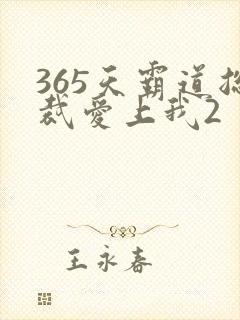 365天霸道总
裁爱上我2
王永春